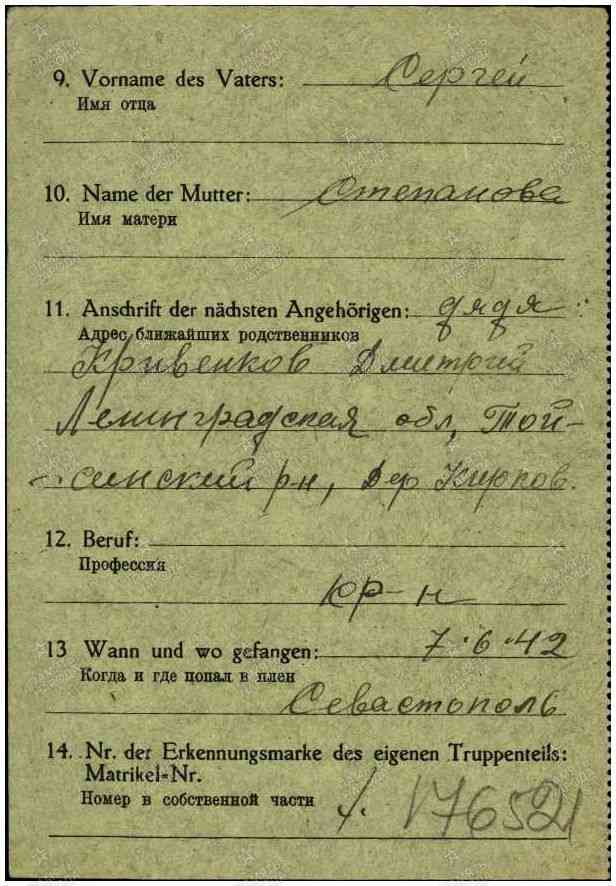 9. Vorname des Vaters: Сергей
Имя отца
10. Name der Mutter: Степанова
Имя матери
11. Anschrift der nächsten Angehörigen: дядя
Адрес ближайших родственников
Кривенков Дмитрий
Ленинградская обл, Той-
синский р-н, Дер Кирков.
12. Beruf:
Профессия
юр-н
13 Wann und wo gefangen: 7.6.42
Когда и где попал в плен
Севастополь
14. Nr. der Erkennungsmarke des eigenen Truppenteils:
Matrikel-Nr.
Номер в собственной части